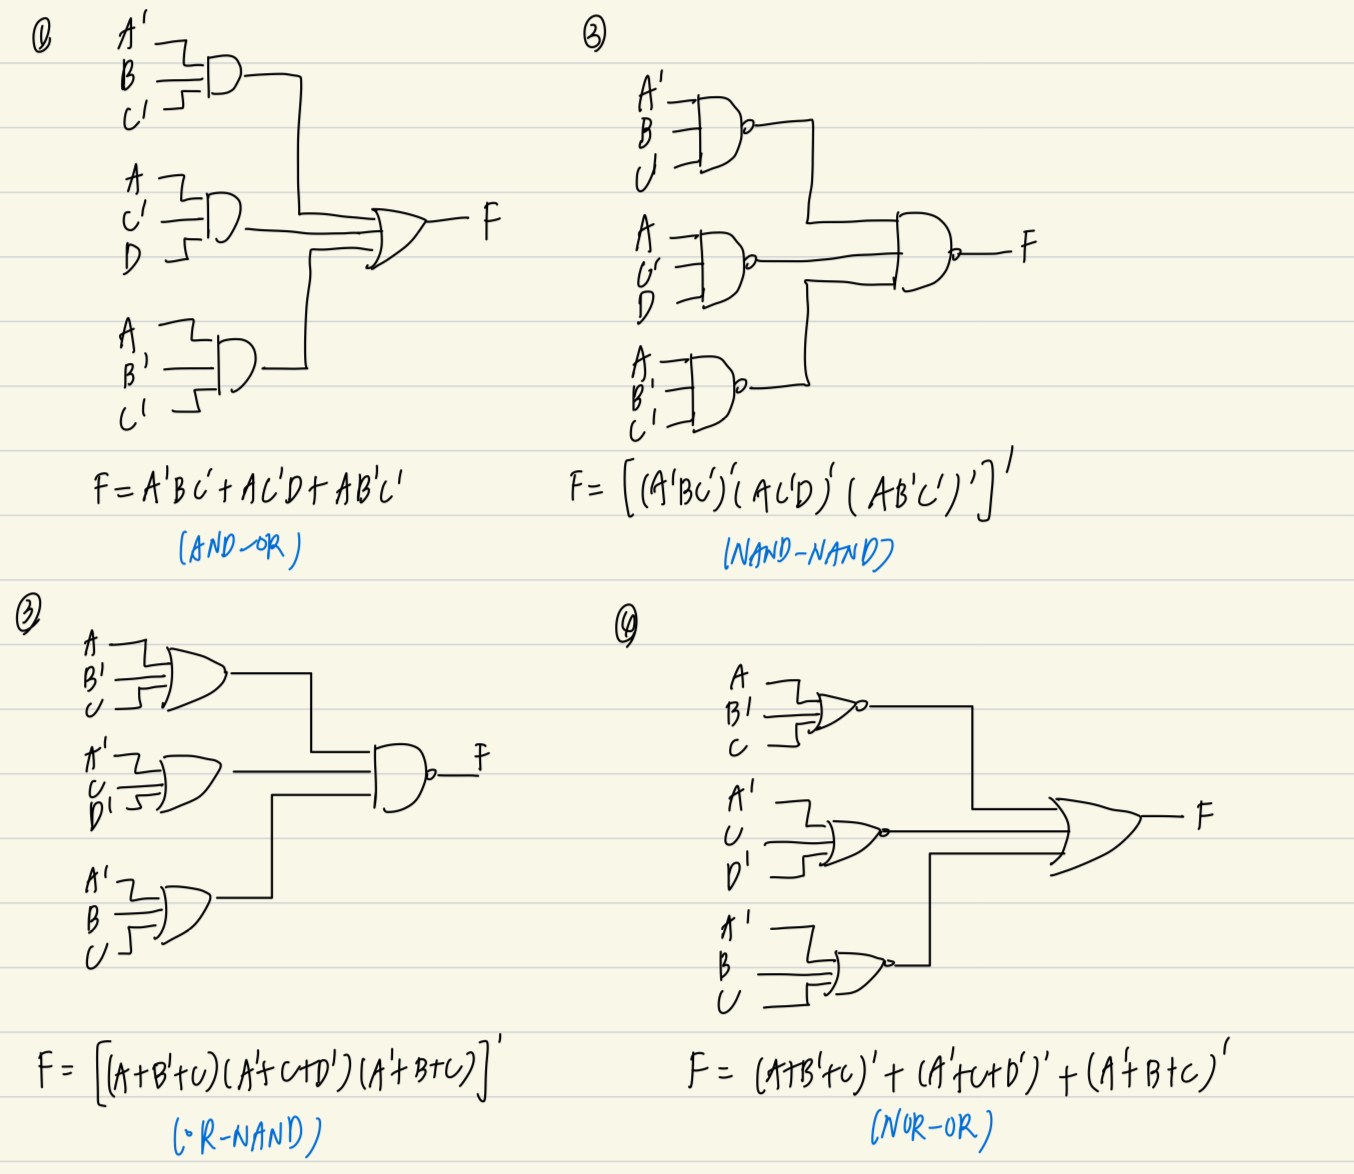 ①
A'
B
C'
A
C'
D
A
B'
C'
F
F = A'BC' + AC'D + AB'C'
(AND-OR)
②
A'
B
C'
A
C'
D
A
B'
C'
F
F = [(A'BC')'(AC'D)'(AB'C')']'
(NAND-NAND)
③
A
B'
C
A'
C
D'
A'
B
C
F
F = [(A+B'+C)(A'+C+D')(A'+B+C)]'
(OR-NAND)
④
A
B'
C
A'
C
D'
A'
B
C
F
F = (A+B'+C)' + (A'+C+D')' + (A'+B+C)'
(NOR-OR)